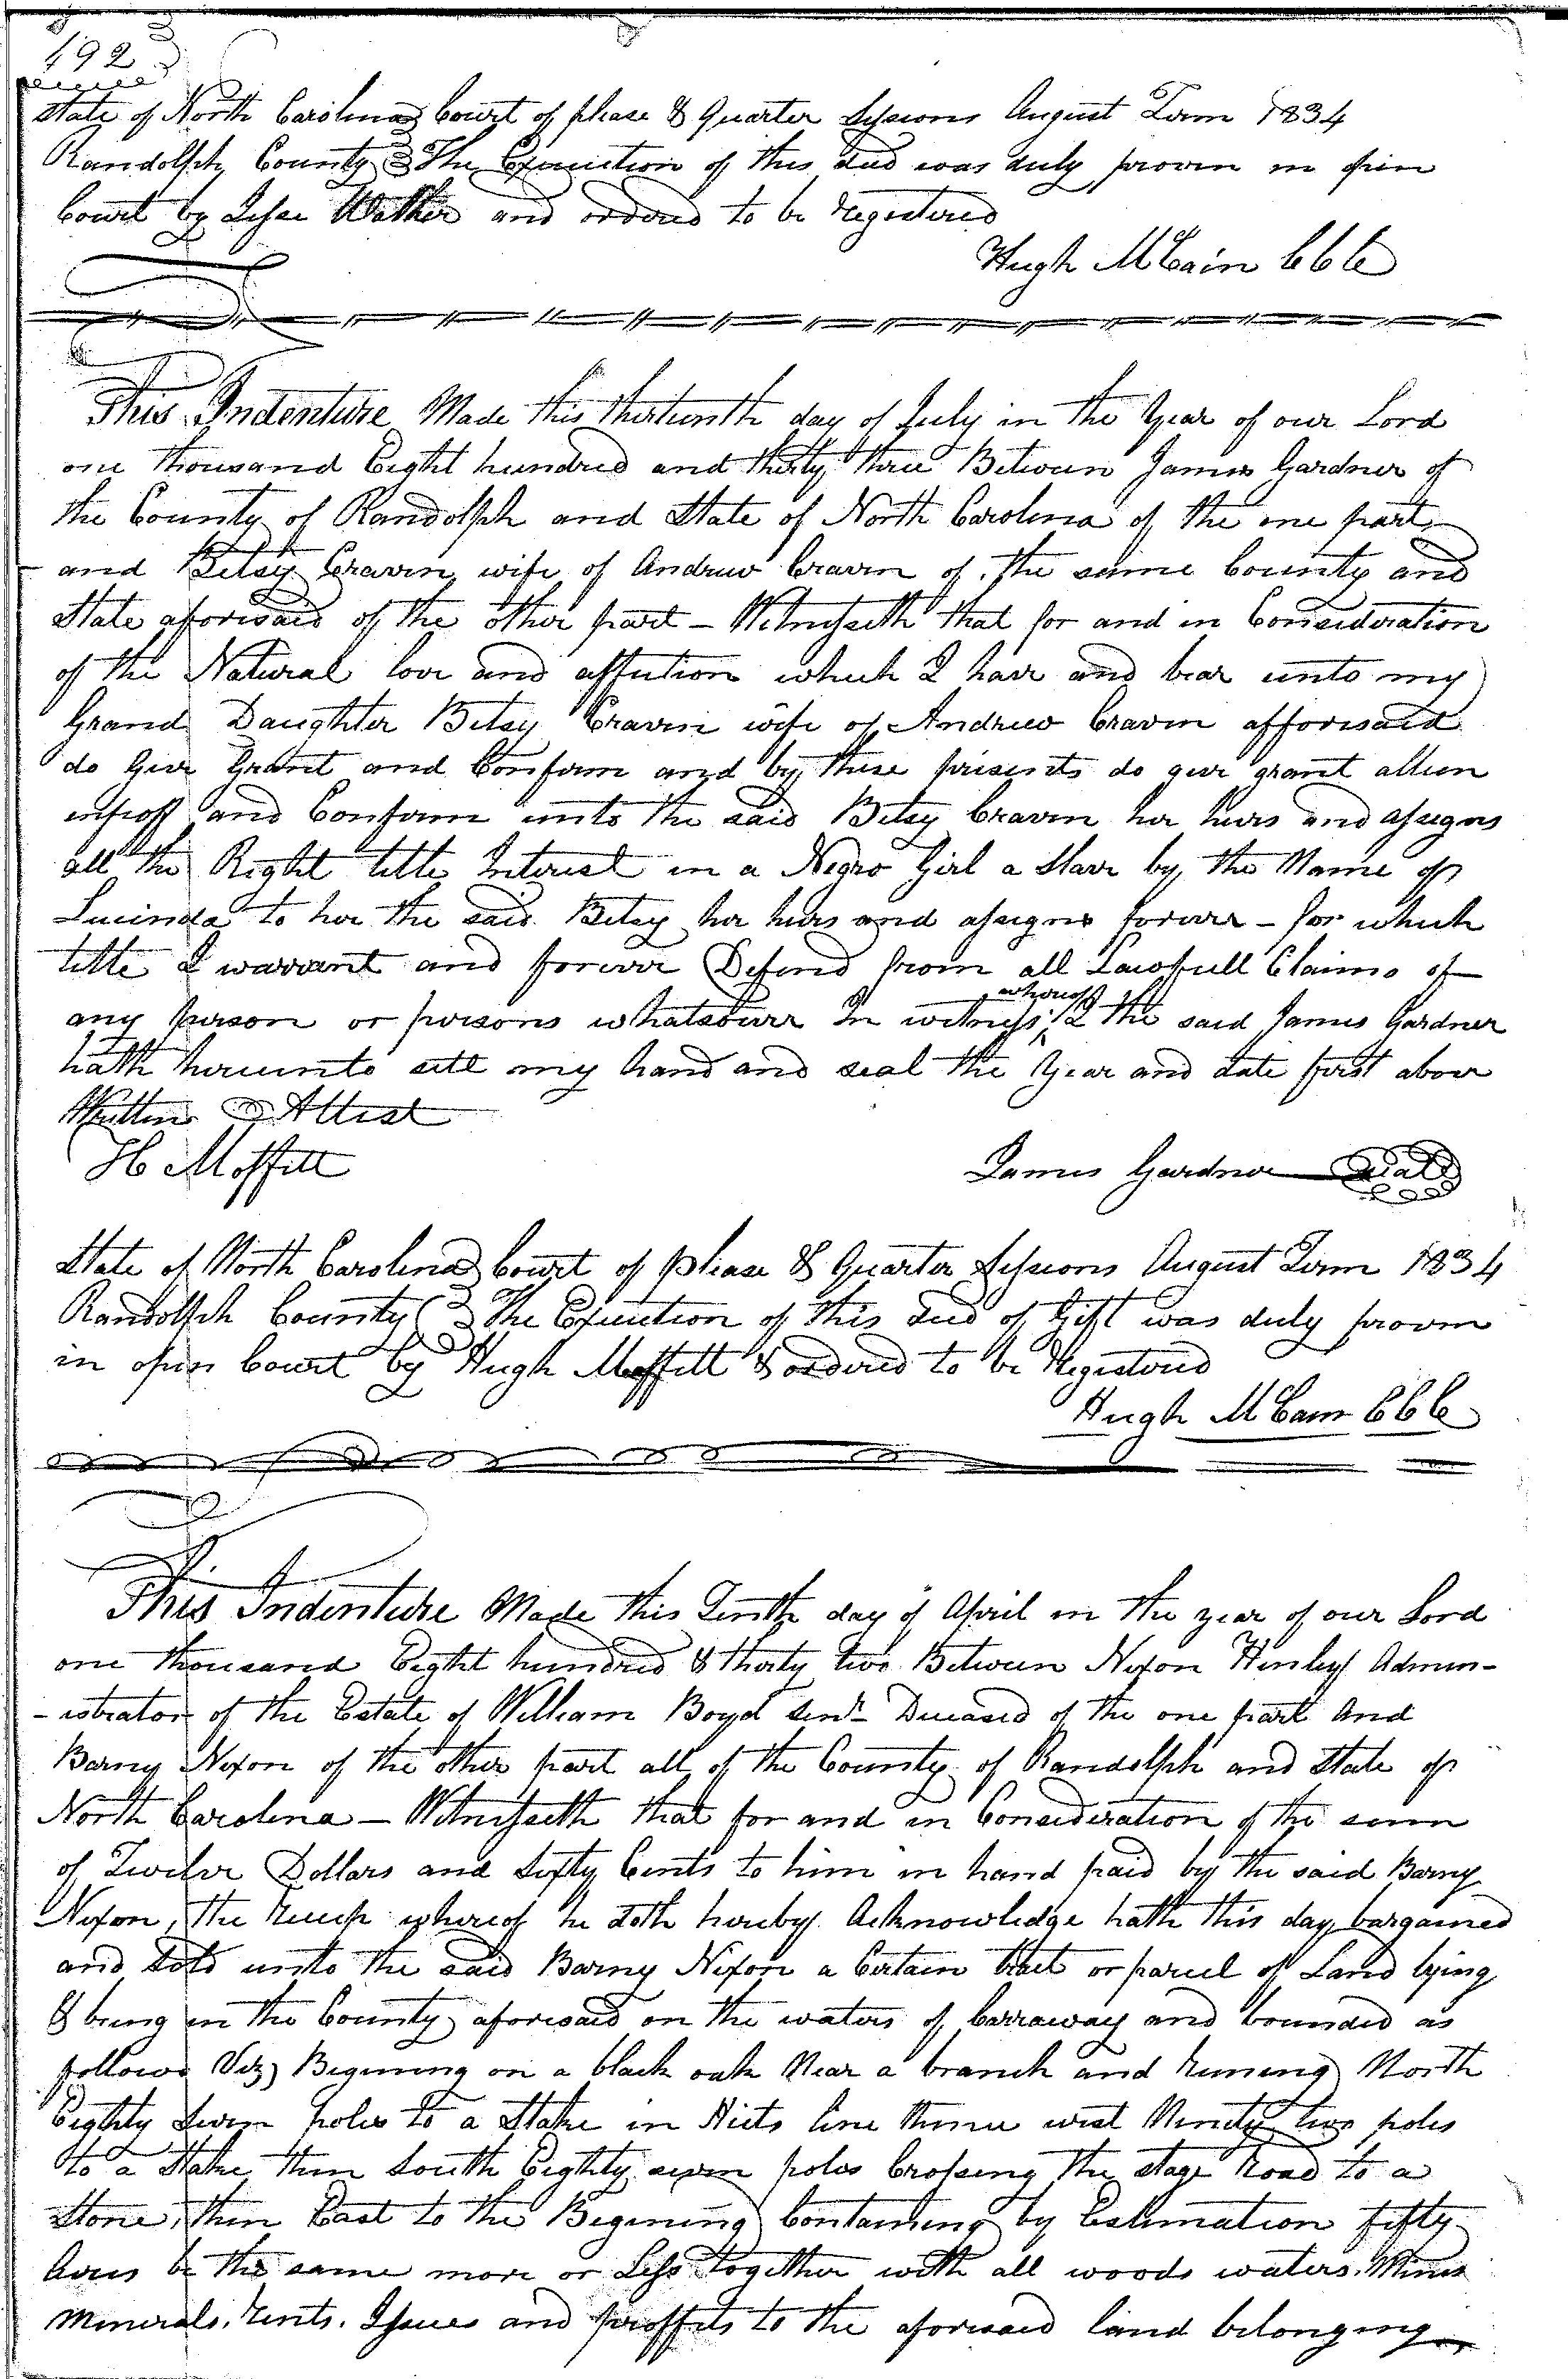 492
State of North Carolina Court of please & Quarter Sessions August Term 1834
Randolph County The Execution of this deed was duly proven in open
Court by Jesse Walker and ordered to be registered
Hugh McCain CCC
This Indenture Made this thirteenth day of July in the Year of our Lord
one thousand Eight hundred and thirty three Between James Gardner of
the County of Randolph and State of North Carolina of the one part
and Betsy Craven wife of Andrew Craven of the same County and
State aforesaid of the other part - Witnesseth that for and in Consideration
of the Natural love and affection which I have and bear unto my
Grand Daughter Betsy Craven wife of Andrew Craven afforesaid
do Give Grant and Confirm and by these presents do give grant alien
infeoff and Confirm unto the said Betsy Craven her heirs and assigns
all the Right title Interest in a Negro Girl a Slave by the Name of
Lucinda to her the said Betsy her heirs and assigns forever - for which
title I warrant and forever Defend from all Lawfull Claims of
any person or persons whatsoever In witness whereof I the said James Gardner
hath hereunto sett my hand and seal the Year and date first above
Written Attest
H Moffitt
James Gardner Seal
State of North Carolina Court of please & Quarter Sessions August Term 1834
Randolph County The Execution of this deed of Gift was duly proven
in open Court by Hugh Moffitt & ordered to be Registered
Hugh McCain CCC
This Indenture Made this Tenth day of April in the year of our Lord
one thousand Eight hundred & thirty two Between Nixon Henley Admin-
-istrator of the Estate of William Boyd senr Deceased of the one part And
Barny Nixon of the other part all of the County of Randolph and State of
North Carolina - Witnesseth that for and in Consideration of the sum
of Twelve Dollars and fifty Cents to him in hand paid by the said Barny
Nixon, the receip whereof he doth hereby Acknowledge hath this day bargained
and sold unto the said Barny Nixon a Certain tract or parcel of Land lying
& being in the County aforesaid on the waters of Carraway and bounded as
follows Viz) Begining on a black oak Near a branch and runing North
Eighty seven poles to a Stake in line thence west Ninety two poles
to a Stake, then South Eighty seven poles Crossing the stage road to a
Stone, then East to the Begining Containing by Estimation fifty
Acres be the same more or Less together with all woods waters. Mines
Minerals. rents. Issues and proffits to the aforesaid land belonging